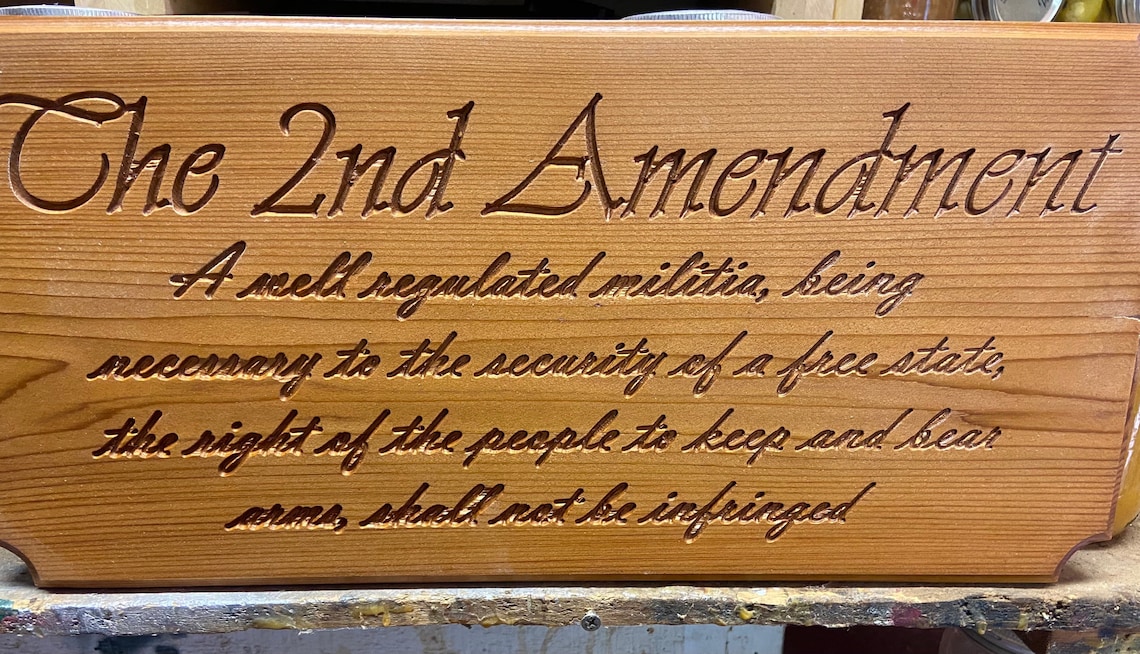 The 2nd Amendment
A well regulated militia, being
necessary to the security of a free state,
the right of the people to keep and bear
arms, shall not be infringed